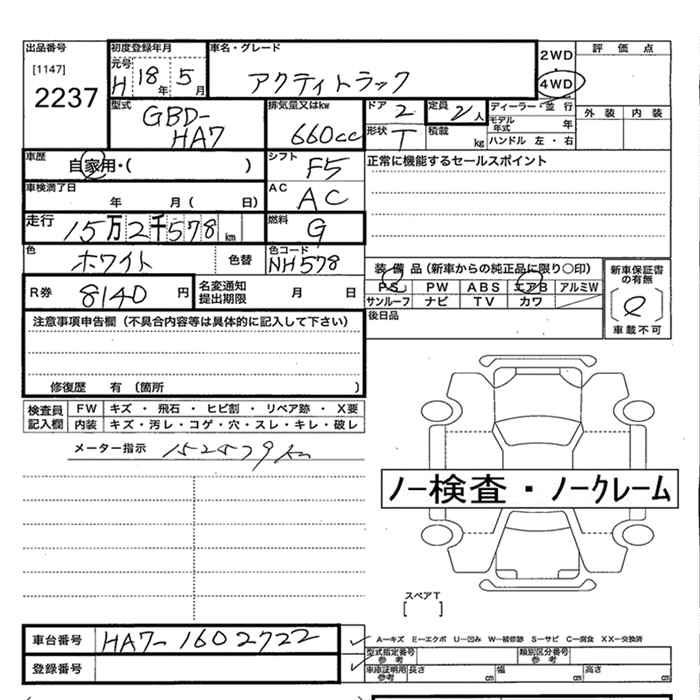 出品番号 初度登録年月 車名・グレード 2WD 評価点
[1147] 元号 H 18年 5月 アクティトラック 4WD
2237 外装 内装
型式 GBD-HA7 排気量又はkw 660cc ドア 2 定員 2人 ディーラー・並行
モデル年式 年
形状 T 積載 kg ハンドル 左・右
車歴 自家用・( ) シフト F5 正常に機能するセールスポイント
車検満了日 年 月( 日) AC AC
走行 15万2千578km 燃料 G
色 ホワイト 色替 色コード NH578
装備品(新車からの純正品に限り○印) 新車保証書の有無
PS PW ABS エアB アルミW
R券 8140円 名変通知提出期限 月 日 サンルーフ ナビ TV カワ
後日品 車載不可
注意事項申告欄(不具合内容等は具体的に記入して下さい)
修復歴 有(箇所 )
検査員記入欄 FW キズ・飛石・ヒビ割・リペア跡・X要
内装 キズ・汚レ・コゲ・穴・スレ・キレ・破レ
メーター指示 152579km
ノー検査・ノークレーム
スペアT
[ ]
車台番号 HA7-1602722 A－キズ E－エクボ U－凹み W－補修跡 S－サビ C－腐食 XX－交換済
型式指定番号 参考 類別区分番号 参考
登録番号 車庫証明用 参考 長さ cm 幅 cm 高さ cm